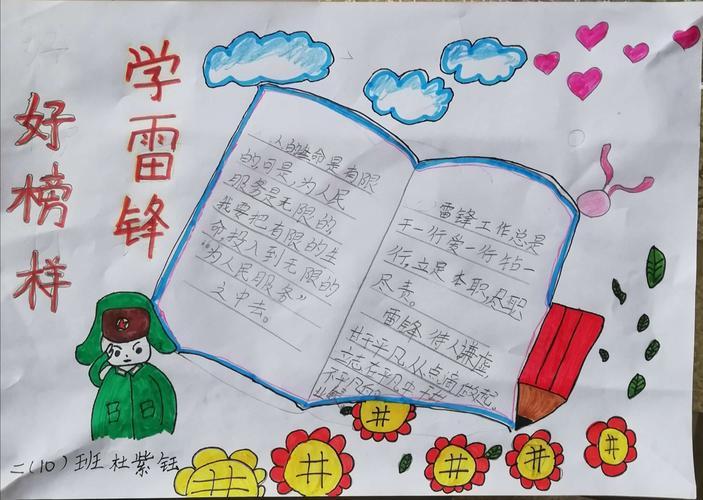 学雷锋
好榜样
人的生命是有限
的可是,为人民
服务是无限的,
我要把有限的生
命投入到无限的
“为人民服务”
之中去。
雷锋工作总是
干一行爱一行钻一
行,立足本职尽职
尽责。
雷锋待人谦虚,
甘于平凡从点滴做起。
立志在平凡中
不平凡的
二(10)班杜紫钰